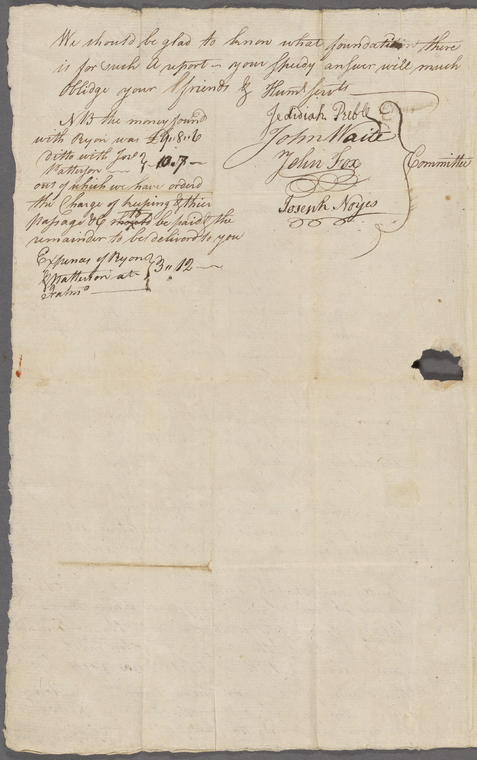 We should be glad to know what foundation there
is for such a report – your speedy answer will much
oblidge your friends & Humle servts
Jedidiah Preble
John Waite
John Fox
Joseph Noyes
Committee
NB the money found
with Ryon was £9..8..6
Ditto with Jno
Patterson — 10..7 —
out of which we have orderd
the Charge of keeping & thier
passage &c to be paid & the
remainder to be deliverd to you
Expences of Ryon
& Patterson at
3..12 —